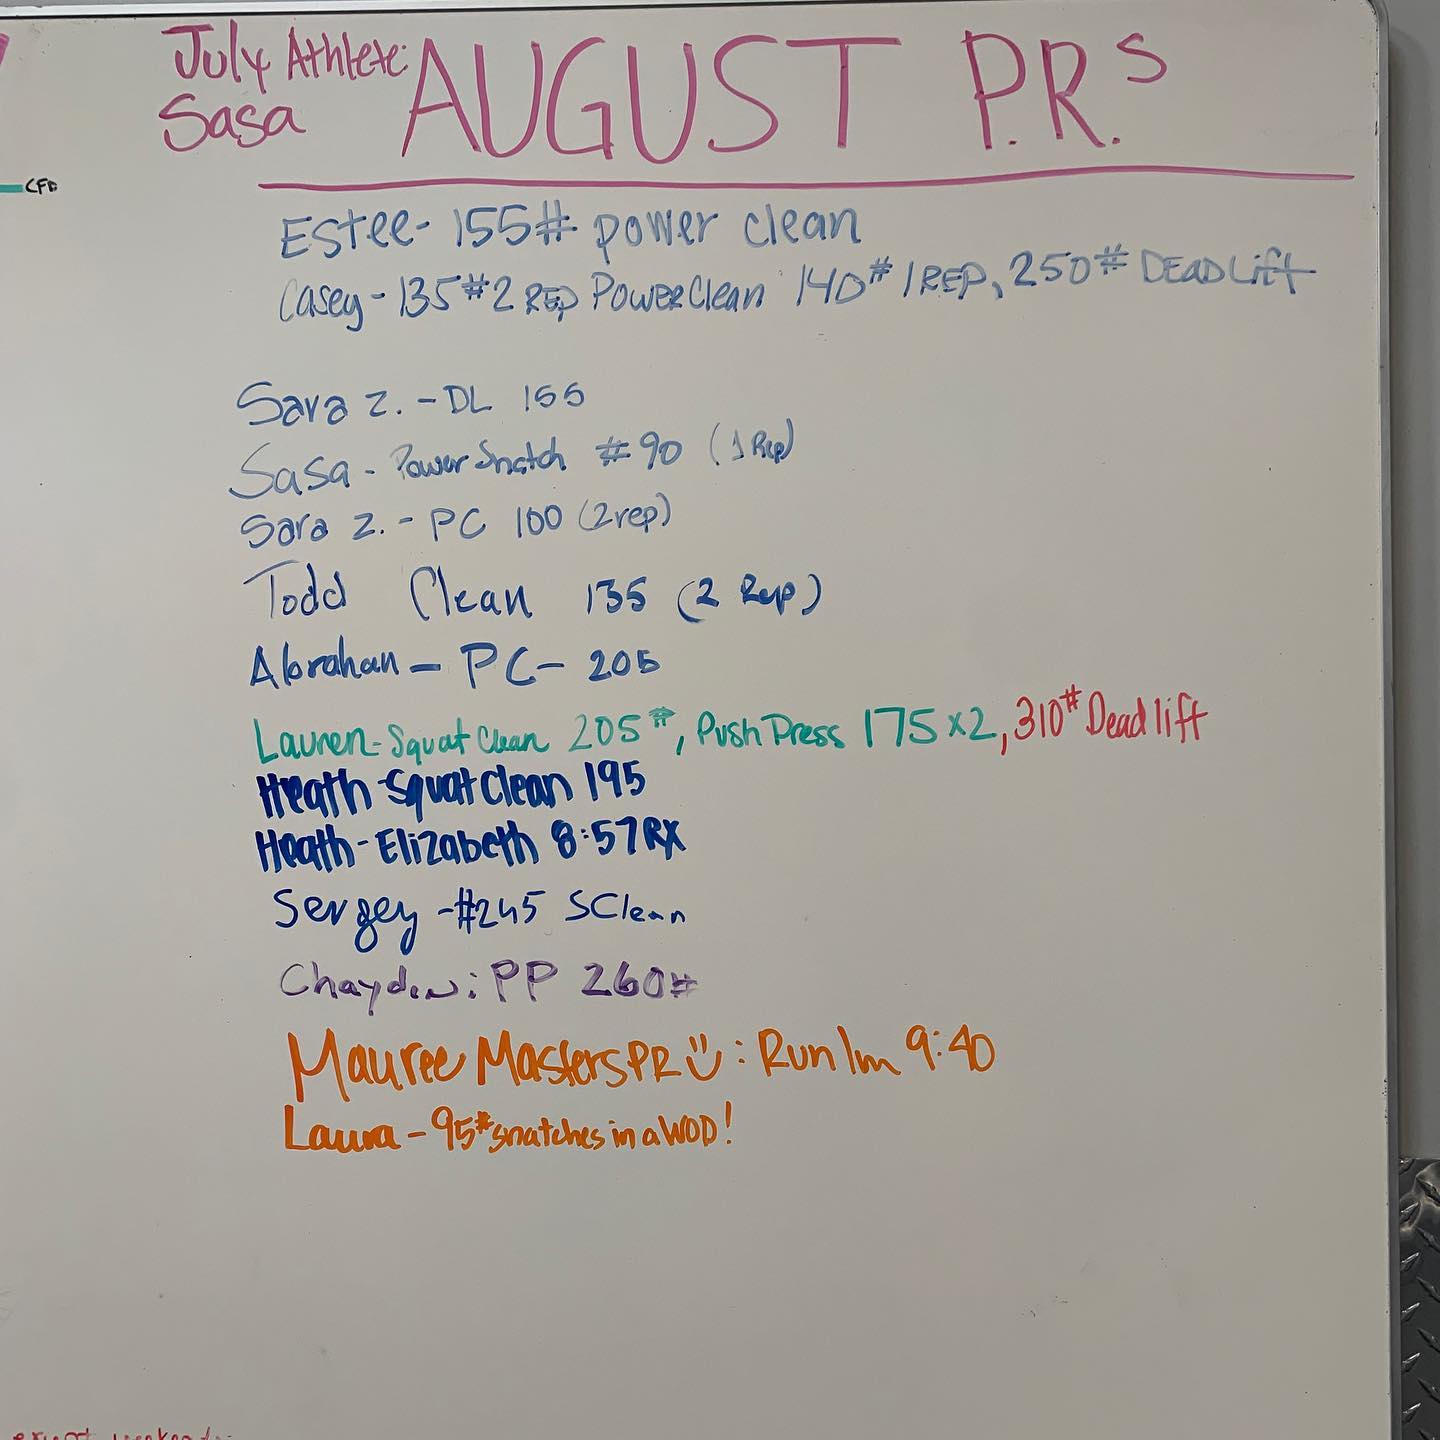 July Athlete:
Sasa
AUGUST P.R.s
CFD
Estee- 155# power clean
Casey - 135#2 REP Power Clean 140# 1 REP, 250# DEADLift
Sara Z. - DL 155
Sasa - Power Snatch #90 (1 Rep)
Sara Z. - PC 100 (2 rep)
Todd Clean 135 (2 Rep)
Abrahan - PC - 205
Lauren - Squat Clean 205#, Push Press 175 x2, 310# Deadlift
Heath - Squat Clean 195
Heath - Elizabeth 8:57 RX
Sergey - #245 SClean
Chayden: PP 260#
Mauree Masters PR : Run 1m 9:40
Laura - 95# snatches in a WOD!